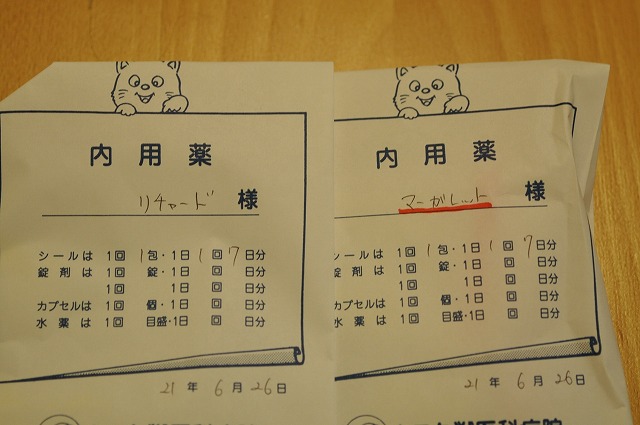 内用薬
リチャード 様
シールは 1回 1包・1日 1回 7日分
錠剤は 1回 錠・1日 回 日分
1回 1日 回 日分
カプセルは 1回 個・1日 回 日分
水薬は 1回 目盛・1日 回 日分
21年 6月 26日
内用薬
マーガレット 様
シールは 1回 1包・1日 1回 7日分
錠剤は 1回 錠・1日 回 日分
1回 1日 回 日分
カプセルは 1回 個・1日 回 日分
水薬は 1回 目盛・1日 回 日分
21年 6月 26日
獣医科病院